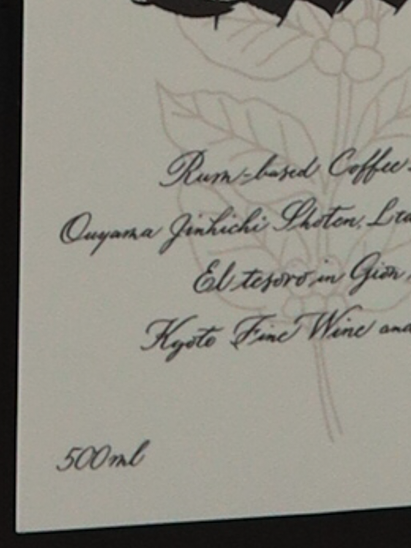 Rum-based Coffee
Ouyama Jinhichi Shoten, Ltd
El tesoro in Gion
Kyoto Fine Wine and
500ml